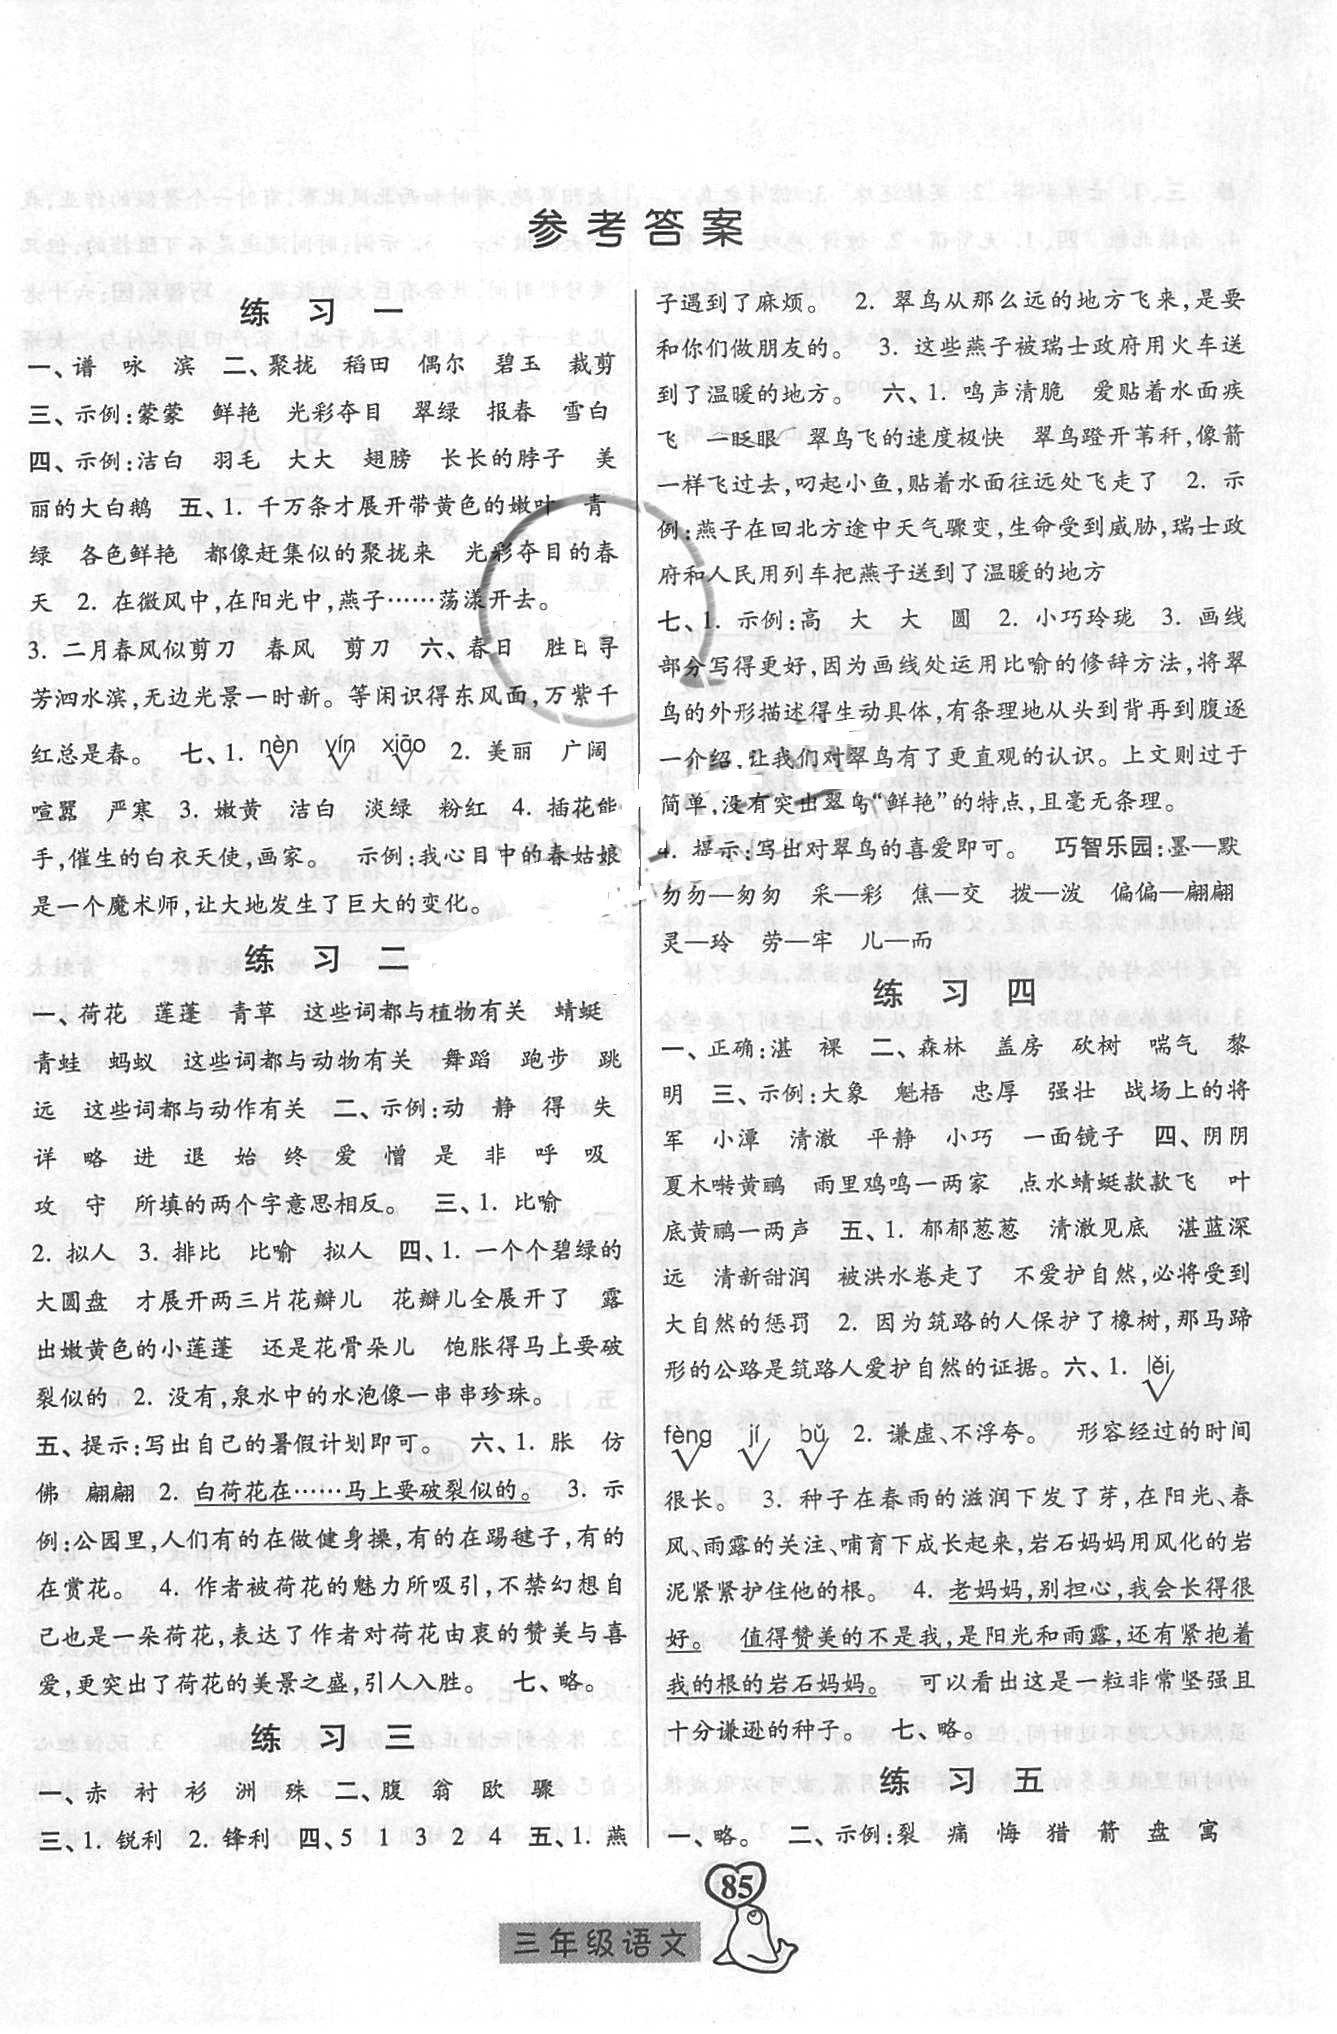 参考答案
练 习 一
一、谱 咏 滨 二、聚拢 稻田 偶尔 碧玉 裁剪
三、示例:蒙蒙 鲜艳 光彩夺目 翠绿 报春 雪白
四、示例:洁白 羽毛 大大 翅膀 长长的脖子 美
丽的大白鹅 五、1. 千万条才展开带黄色的嫩叶 青
绿 各色鲜艳 都像赶集似的聚拢来 光彩夺目的春
天 2. 在微风中,在阳光中,燕子……荡漾开去。
3. 二月春风似剪刀 春风 剪刀 六、春日 胜日寻
芳泗水滨,无边光景一时新。等闲识得东风面,万紫千
红总是春。 七、1. nèn yín xiāo 2. 美丽 广阔
喧嚣 严寒 3. 嫩黄 洁白 淡绿 粉红 4. 插花能
手,催生的白衣天使,画家。 示例:我心目中的春姑娘
是一个魔术师,让大地发生了巨大的变化。
练 习 二
一、荷花 莲蓬 青草 这些词都与植物有关 蜻蜓
青蛙 蚂蚁 这些词都与动物有关 舞蹈 跑步 跳
远 这些词都与动作有关 二、示例:动 静 得 失
详 略 进 退 始 终 爱 憎 是 非 呼 吸
攻 守 所填的两个字意思相反。 三、1. 比喻
2. 拟人 3. 排比 比喻 拟人 四、1. 一个个碧绿的
大圆盘 才展开两三片花瓣儿 花瓣儿全展开了 露
出嫩黄色的小莲蓬 还是花骨朵儿 饱胀得马上要破
裂似的 2. 没有,泉水中的水泡像一串串珍珠。
五、提示:写出自己的暑假计划即可。 六、1. 胀 仿
佛 翩翩 2. 白荷花在……马上要破裂似的。 3. 示
例:公园里,人们有的在做健身操,有的在踢毽子,有的
在赏花。 4. 作者被荷花的魅力所吸引,不禁幻想自
己也是一朵荷花,表达了作者对荷花由衷的赞美与喜
爱,更突出了荷花的美景之盛,引人入胜。 七、略。
练 习 三
一、赤 衬 衫 洲 殊 二、腹 翁 欧 骤
三、1. 锐利 2. 锋利 四、5 1 3 2 4 五、1. 燕
子遇到了麻烦。 2. 翠鸟从那么远的地方飞来,是要
和你们做朋友的。 3. 这些燕子被瑞士政府用火车送
到了温暖的地方。 六、1. 鸣声清脆 爱贴着水面疾
飞 一眨眼 翠鸟飞的速度极快 翠鸟蹬开苇秆,像箭
一样飞过去,叼起小鱼,贴着水面往远处飞走了 2. 示
例:燕子在回北方途中天气骤变,生命受到威胁,瑞士政
府和人民用列车把燕子送到了温暖的地方
七、1. 示例:高 大 大 圆 2. 小巧玲珑 3. 画线
部分写得更好,因为画线处运用比喻的修辞方法,将翠
鸟的外形描述得生动具体,有条理地从头到背再到腹逐
一介绍,让我们对翠鸟有了更直观的认识。上文则过于
简单,没有突出翠鸟“鲜艳”的特点,且毫无条理。
4. 提示:写出对翠鸟的喜爱即可。 巧智乐园:墨—默
勿勿—匆匆 采—彩 焦—交 拨—泼 偏偏—翩翩
灵—玲 劳—牢 儿—而
练 习 四
一、正确:湛 裸 二、森林 盖房 砍树 喘气 黎
明 三、示例:大象 魁梧 忠厚 强壮 战场上的将
军 小潭 清澈 平静 小巧 一面镜子 四、阴阴
夏木啭黄鹂 雨里鸡鸣一两家 点水蜻蜓款款飞 叶
底黄鹂一两声 五、1. 郁郁葱葱 清澈见底 湛蓝深
远 清新甜润 被洪水卷走了 不爱护自然,必将受到
大自然的惩罚 2. 因为筑路的人保护了橡树,那马蹄
形的公路是筑路人爱护自然的证据。六、1. lěi
fèng jí bǔ 2. 谦虚、不浮夸。 形容经过的时间
很长。 3. 种子在春雨的滋润下发了芽,在阳光、春
风、雨露的关注、哺育下成长起来,岩石妈妈用风化的岩
泥紧紧护住他的根。 4. 老妈妈,别担心,我会长得很
好。 值得赞美的不是我,是阳光和雨露,还有紧抱着
我的根的岩石妈妈。 可以看出这是一粒非常坚强且
十分谦逊的种子。 七、略。
练 习 五
一、略。 二、示例:裂 痛 悔 猎 箭 盘 寓
85
三年级语文